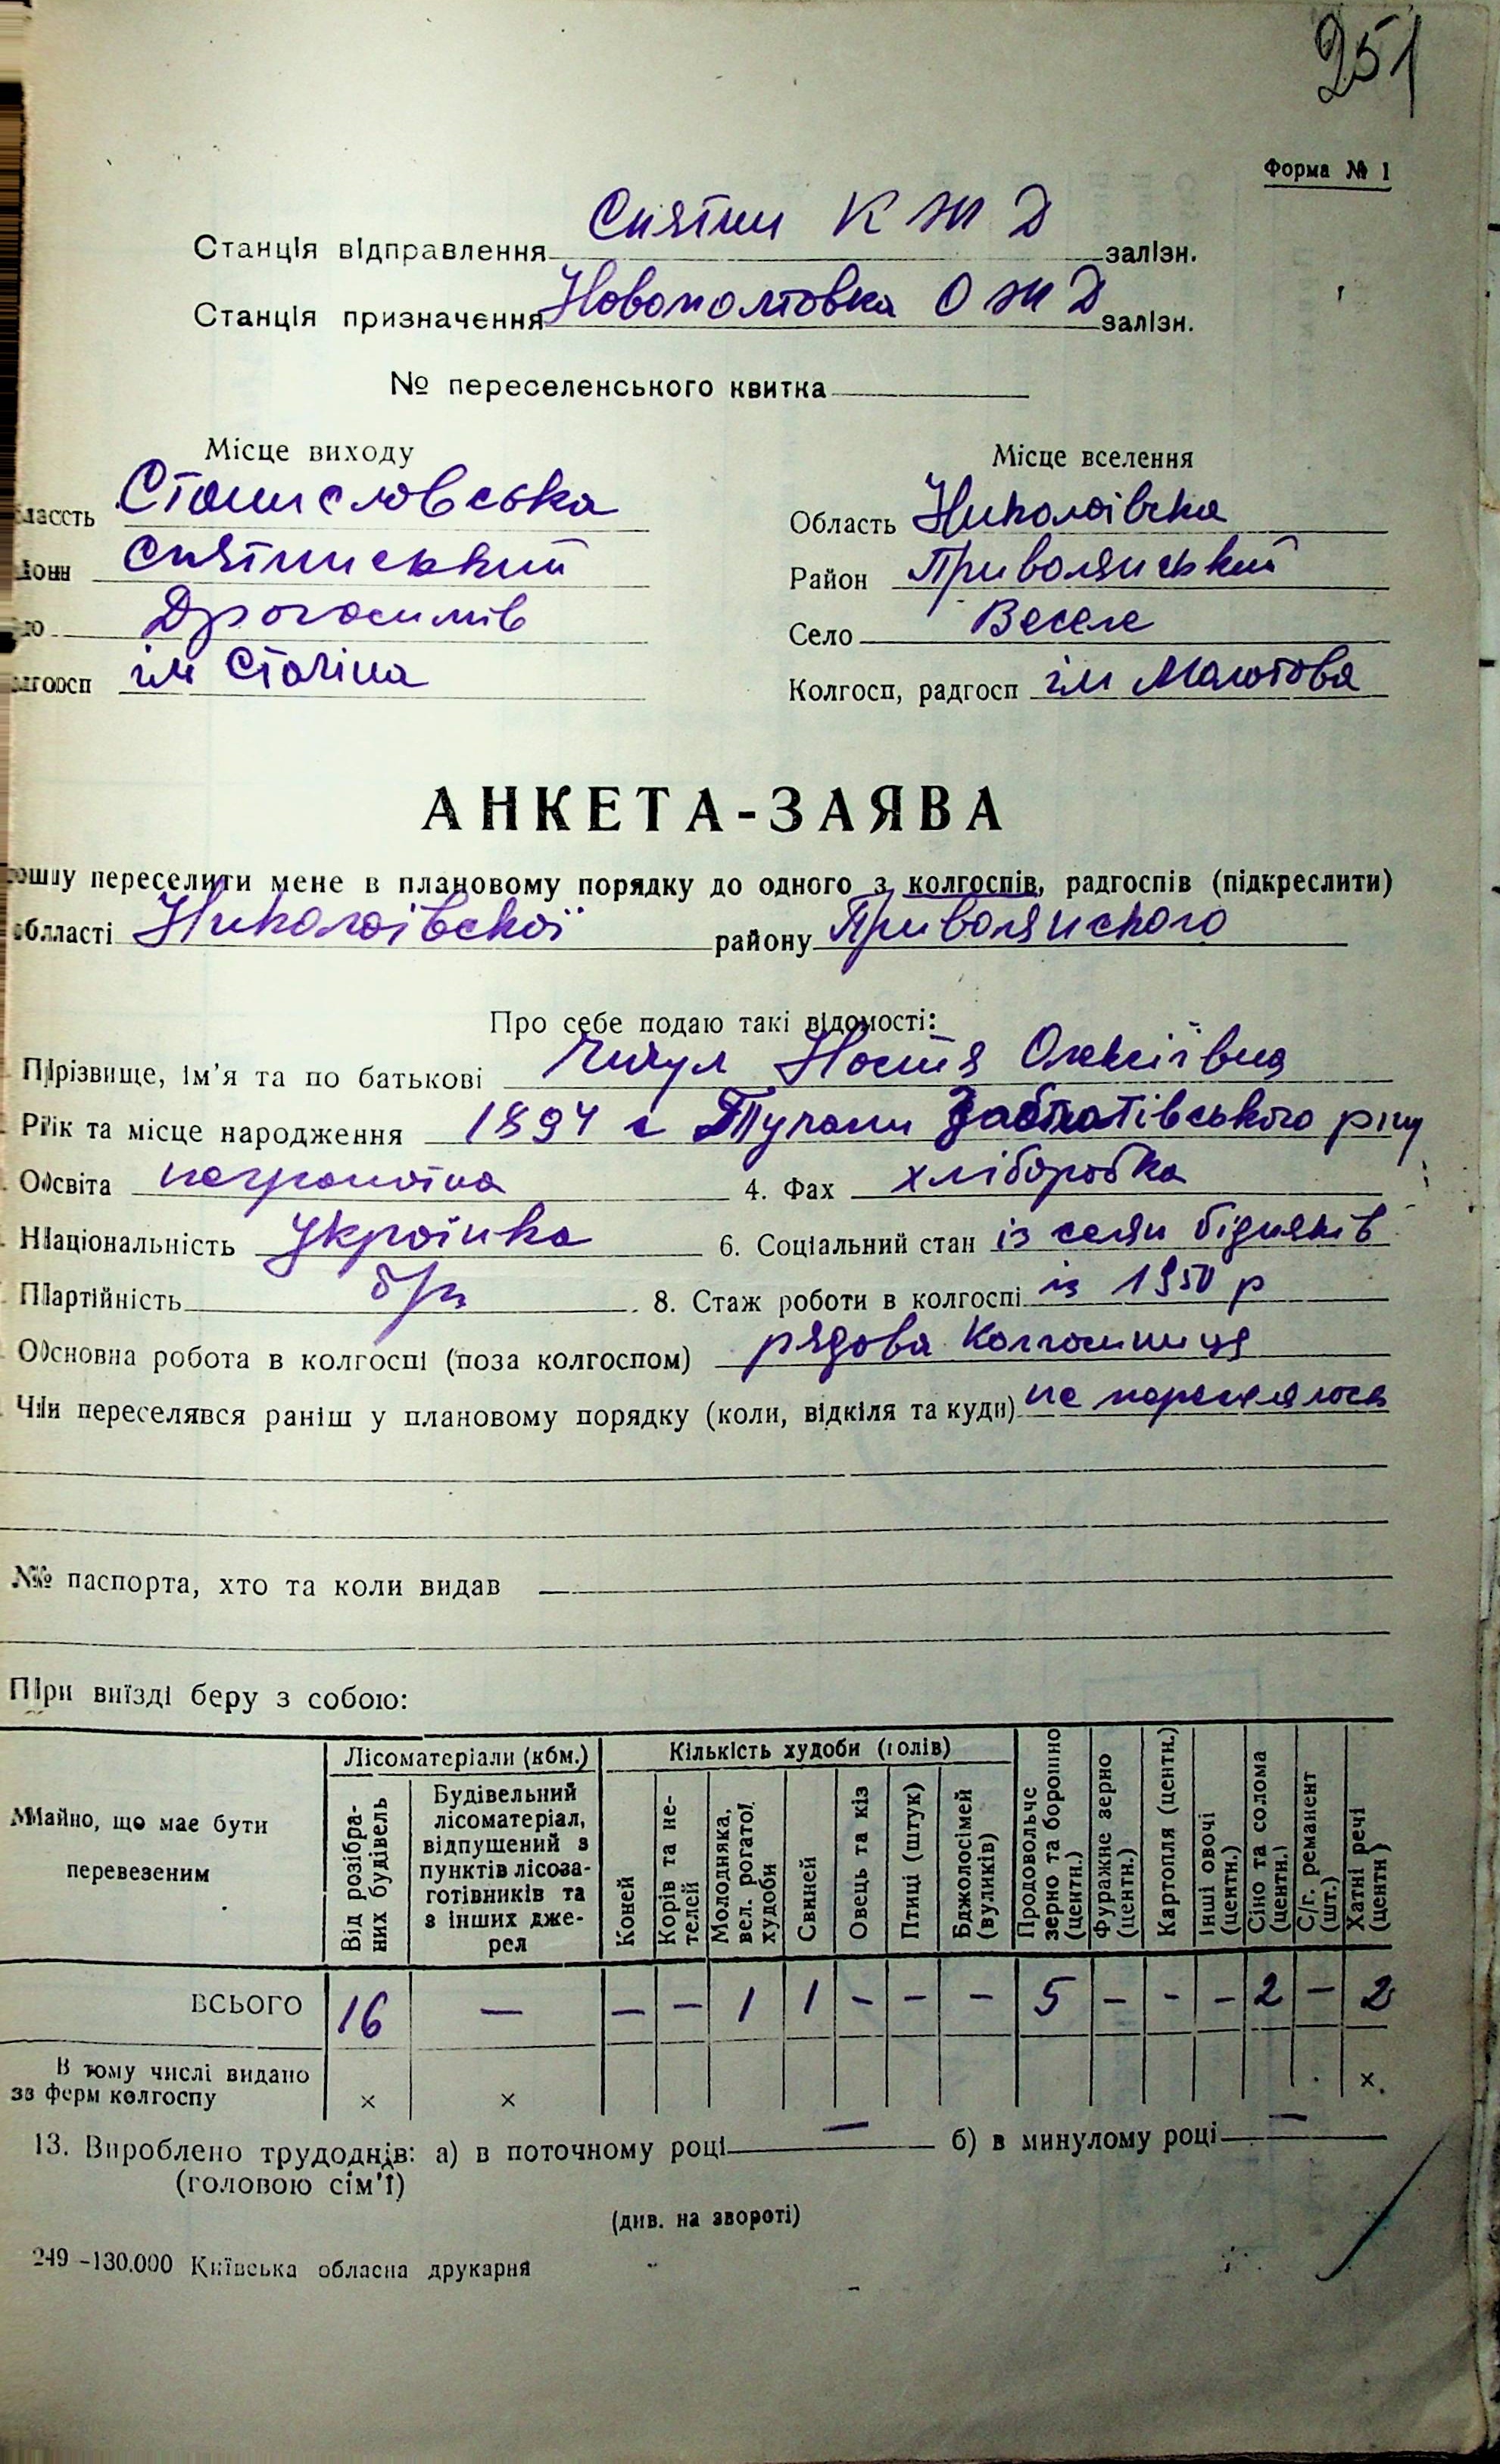 251
Форма № 1
Станція відправлення Снятин К Ж Д залізн.
Станція призначення Новополтовка О Ж Д залізн.
№ переселенського квитка
Місце виходу
Місце вселення
лассть Станиславська
Область Николаївска
йонн Снятинський
Район Привольянський
ло Драгасимів
Село Веселе
лгосп ім Сталіна
Колгосп, радгосп ім Молотова
АНКЕТА-ЗАЯВА
рошшу переселити мене в плановому порядку до одного з колгоспів, радгоспів (підкреслити)
області Николаївскої району Приволянского
Про себе подаю такі відомості:
Прізвище, ім'я та по батькові Настя Олексіївна
Рік та місце народження 1894 с Тулави Заблатівського р-ну
Освіта неграмотна 4. Фах хліборобка
Національність Українка 6. Соціальний стан із селян бідняків
Партійність б/п 8. Стаж роботи в колгоспі із 1950 р
Основна робота в колгоспі (поза колгоспом) рядова колгоспниця
Чи переселявся раніш у плановому порядку (коли, відкіля та куди) не переселялась
№ паспорта, хто та коли видав
При виїзді беру з собою:
Майно, що має бути перевезеним
Лісоматеріали (кбм.)
Кількість худоби (голів)
Від розібраних будівель
Будівельний лісоматеріал, відпущений з пунктів лісозаготівників та з інших джерел
Коней
Корів та нетелей
Молодняка, вел. рогатої худоби
Свиней
Овець та кіз
Птиці (штук)
Бджолосімей (вуликів)
Продовольче зерно та борошно (центн.)
Фуражне зерно (центн.)
Картопля (центн.)
Інші овочі (центн.)
Сіно та солома (центн.)
С/г. реманент (шт.)
Хатні речі (центн)
ВСЬОГО 16 — — — 1 1 — — — 5 — — — 2 — 2
В тому числі видано
зз ферм колгоспу × × ×.
13. Вироблено трудоднів: а) в поточному році — б) в минулому році —
(головою сім'ї)
(див. на звороті)
249 -130.000 Київська обласна друкарня